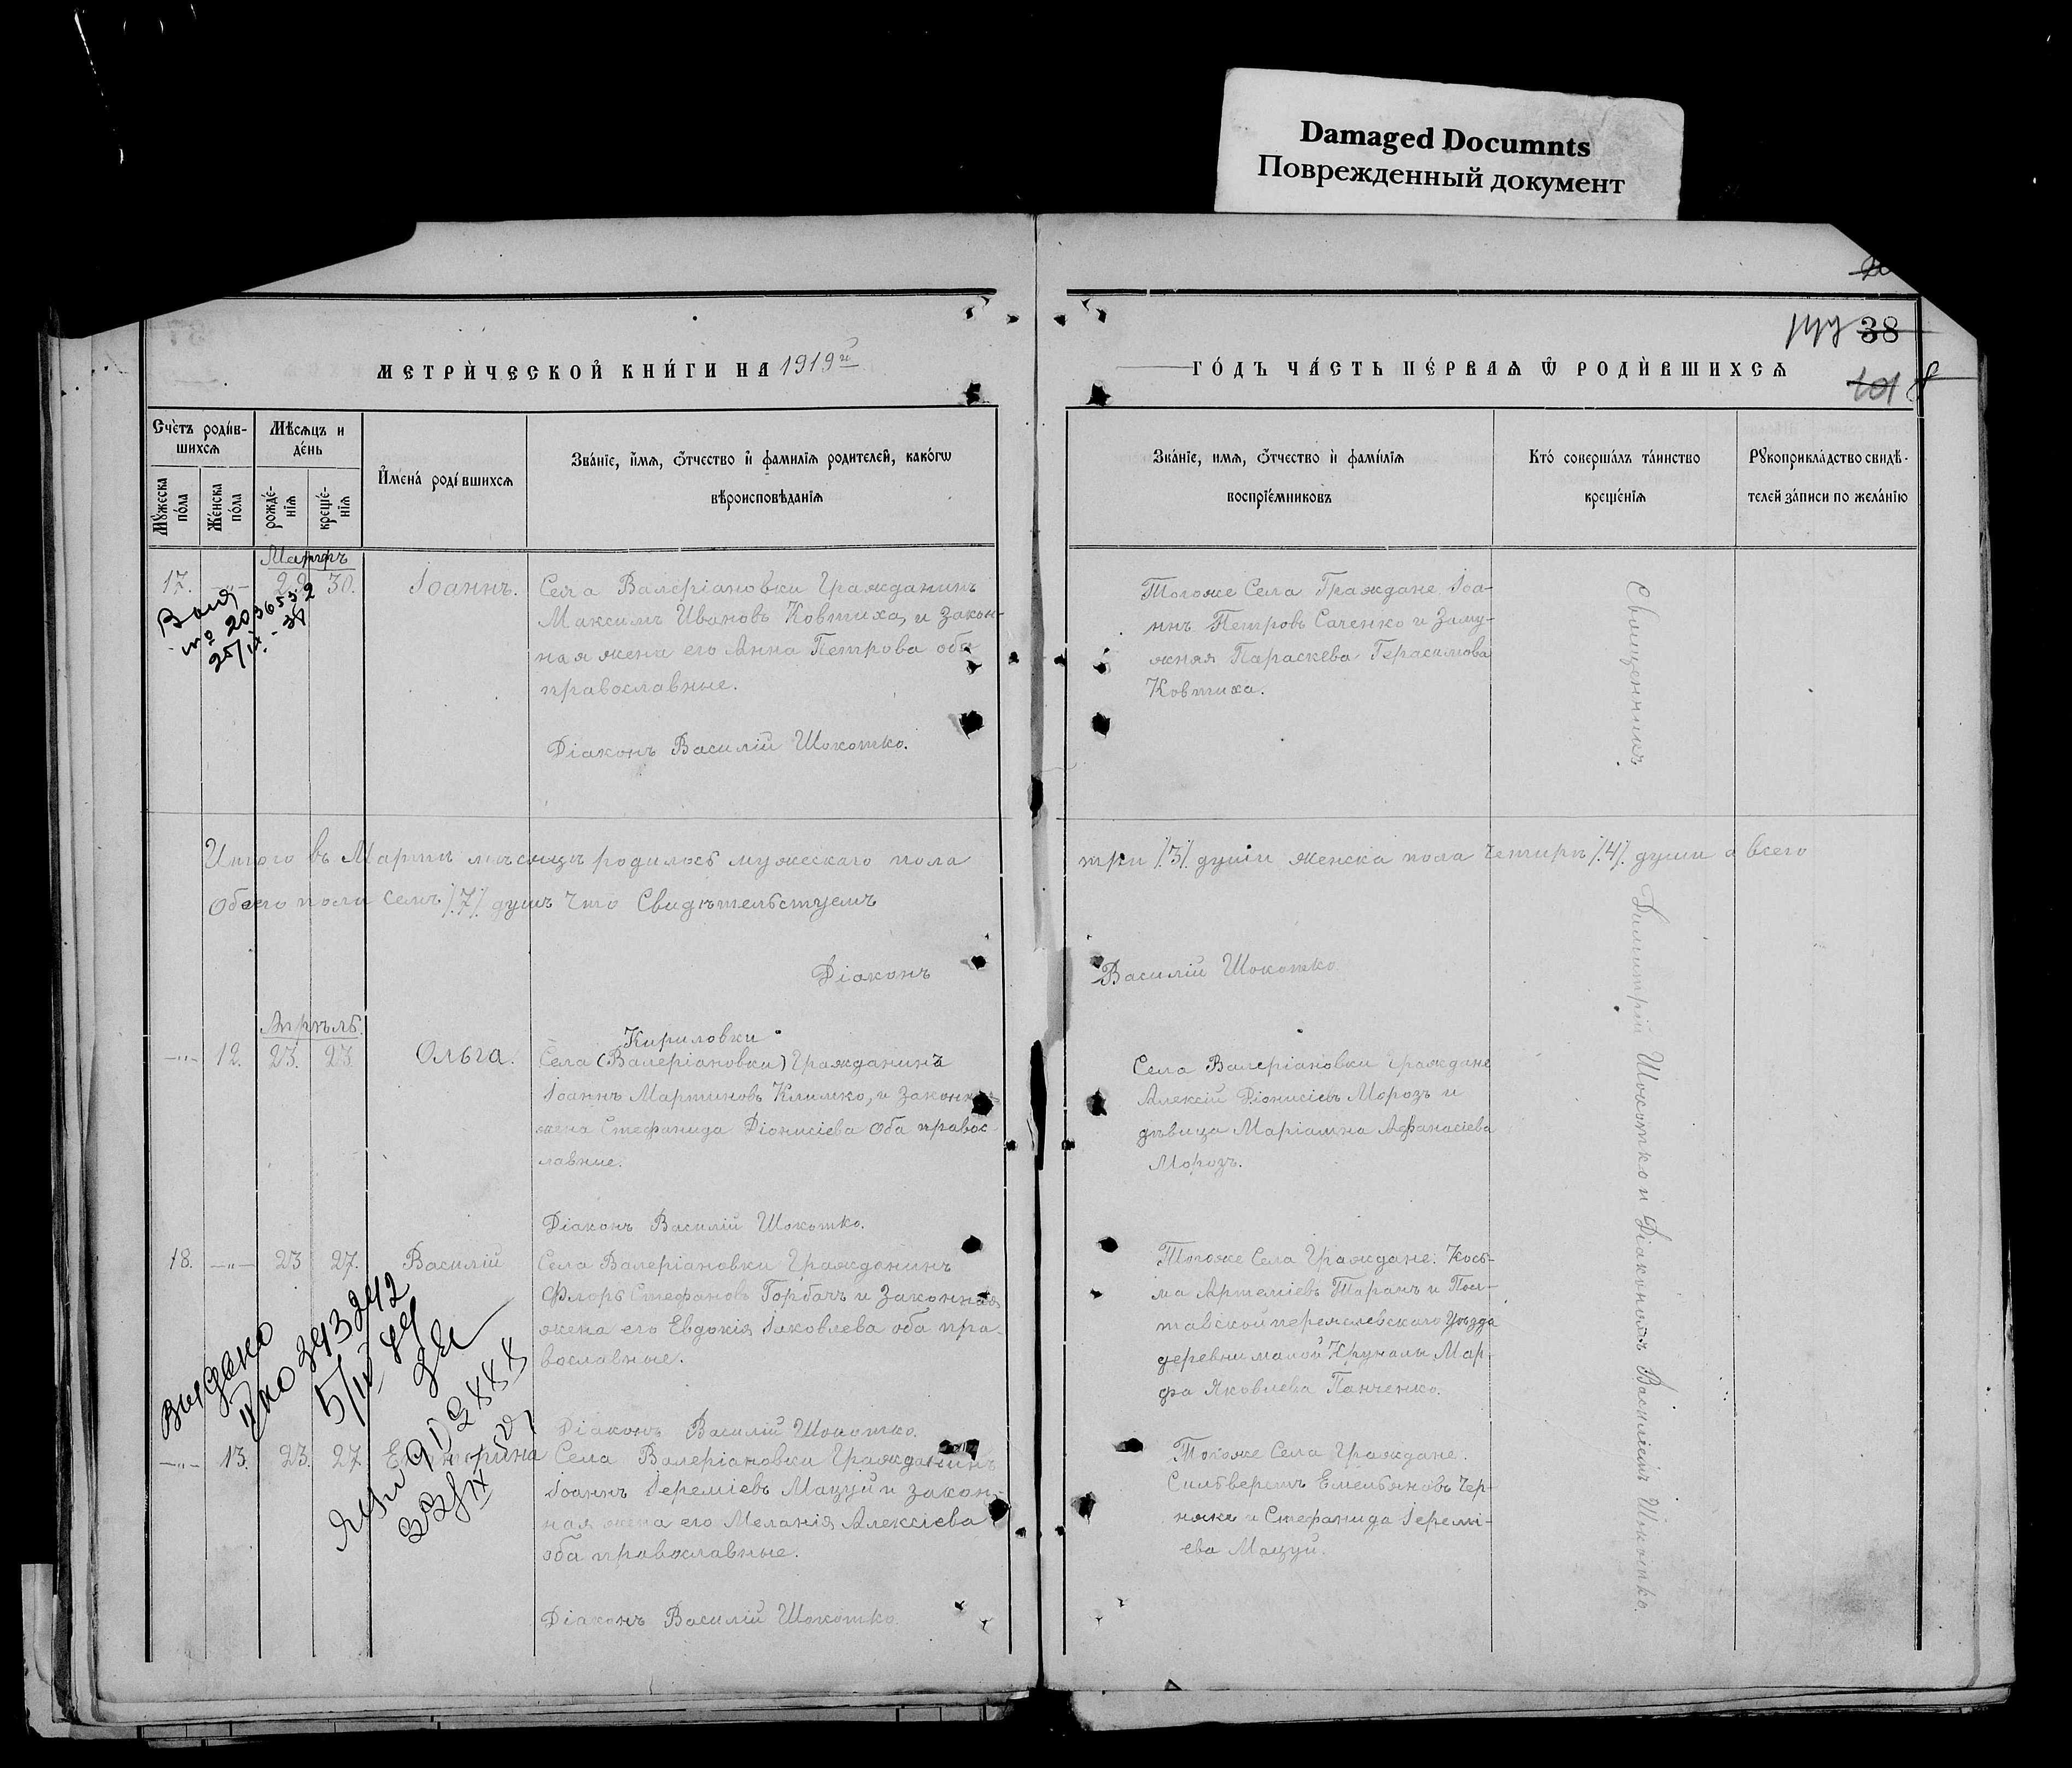 Damaged Documnts
Поврежденный документ
38
101
МЕТРИЧЕСКОЙ КНИГИ НА 1919й
ГОДЪ ЧАСТЬ ПЕРВАѦ Ѿ РОДИВШИХСѦ
Счетъ родив-
шихсѧ
Мѣсѧцъ и
день
Мꙋжеска
пола
Женска
пола
рожде-
нїѧ
креще-
нїѧ
Имена родившихсѧ
Званїе, имѧ, ѻтчество и фамилїѧ родителей, какогѡ
вѣроисповѣданїѧ
Званїе, имѧ, ѻтчество и фамилїѧ
воспрїемниковъ
Кто совершалъ таинство
крещенїѧ
Рꙋкоприкладство свидѣ-
телей записи по желанїю
Мартъ
17. —"— 22 30. Іоаннъ.
Села Валеріановки Гражданинъ
Максимъ Ивановъ Ковтиха, и закон-
ная жена его Анна Петрова оба
православные.
Діаконъ Василій Шокотко.
Тогоже Села Граждане Іоа-
ннъ Петровъ Саченко и Заму-
жняя Параскева Герасимова
Ковтиха.
2036532
Итого въ Мартѣ мѣсяцѣ родилось мужескаго пола три /.3/. души женска пола четирѣ /.4/. души а всего
Обоего пола семъ /.7/. душъ что Свидѣтельствуемъ
Діаконъ Василій Шокотко
Апрѣль.
—"— 12. 23. 23 Ольга.
Кириловки
Села (Валеріановки) Гражданинъ
Іоаннъ Мартиновъ Климко, и законная
жена Стефанида Діонисіева Оба правос-
лавные.
Діаконъ Василій Шокотко.
Села Валеріановки Граждане
Алексій Діонисіевъ Морозъ и
дѣвица Маріамна Афанасіева
Морозъ.
18. —"— 23 27. Василій
Села Валеріановки Гражданинъ
Флоръ Стефановъ Горбачъ и Законная
жена его Евдокія Іаковлева оба пра-
вославные.
Діаконъ Василій Шокотко.
Тогоже Села Граждане: Кось-
ма Артеміевъ Таранъ и Пол-
тавской переяслевскаго Уѣзда
деревни малой Мар-
фа Яковлева Панченко.
Выдано
—"— 13. 23. 27. Екатерина
Села Валеріановки Гражданинъ
Іоаннъ Іереміевъ Мацуй и закон-
ная жена его Меланія Алексіева
оба православные.
Діаконъ Василій Шокотко.
Тогоже Села Граждане.
Сильверстъ Емельяновъ Чер-
няк и Стефанида Іеремі-
ева Мацуй.
Священникъ Димитрій Шокотко и Діакономъ Василіемъ Шокотко.